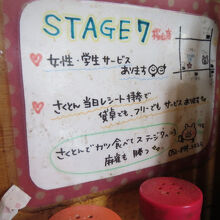 STAGE7
♡ 女性・学生サービス
あります
♡ さくとん当日レシート持参で
貸卓でも、フリーでもサービスあります
さくとんでカツ食べてステージ7へ
麻雀も勝つ